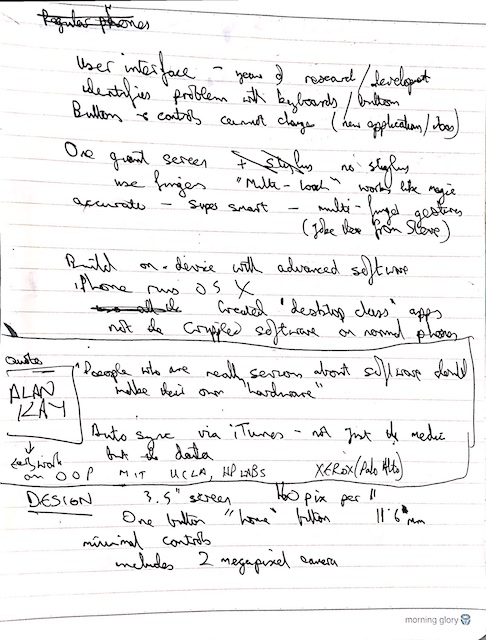 Regular phones
User interface - years of research / development
identifies problem with keyboards / button
Buttons & controls cannot change (new application / ideas)
One giant screen + stylus no stylus
use finger "Multi-touch" works like magic
accurate - super smart - multi-finger gestures
(Joke here from Steve)
Build on-device with advanced software
iPhone runs OS X
Created "desktop class" apps
not the crippled software on normal phones
Quote
ALAN
KAY
"People who are really serious about software should
make their own "hardware"
Auto sync via iTunes - not just the media
but the data
early work
on OOP MIT UCLA, HP LABS XEROX (Palo Alto)
DESIGN 3.5" screen 160 pix per "
One button "home" button 11.6 mm
minimal controls
includes 2 megapixel camera
morning glory